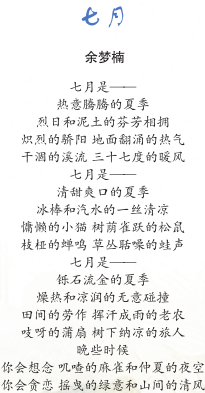 七月
余梦楠
七月是——
热意腾腾的夏季
烈日和泥土的芬芳相拥
炽烈的骄阳 地面翻涌的热气
干涸的溪流 三十七度的暖风
七月是——
清甜爽口的夏季
冰棒和汽水的一丝清凉
慵懒的小猫 树荫雀跃的松鼠
枝桠的蝉鸣 草丛聒噪的蛙声
七月是——
铄石流金的夏季
燥热和凉润的无意碰撞
田间的劳作 挥汗成雨的老农
吱呀的蒲扇 树下纳凉的旅人
晚些时候
你会想念 叽喳的麻雀和仲夏的夜空
你会贪恋 摇曳的绿意和山间的清风